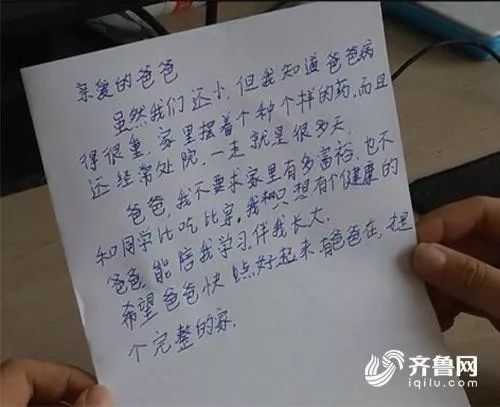 亲爱的爸爸
虽然我们还小.但我知道爸爸病
得很重.家里摆着个种个样的药,而且
还经常处院,一走就是很多天.
爸爸,我不要求家里有多富裕.也不
和同学比吃比穿.我们只想有个健康的
爸爸,能陪我学习伴我长大.
希望爸爸快点好起来.有爸爸在,
个完整的家.
齐鲁网
iqilu.com